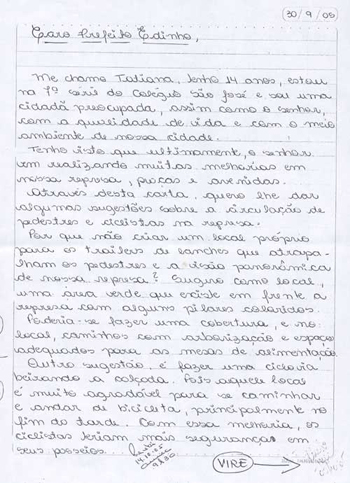 30/9/05
Caro Prefeito Edinho,
Me chamo Tatiana, tenho 14 anos, estou
na 7ª série do Colégio São José e sou uma
cidadã preocupada, assim como o senhor,
com a qualidade de vida e com o meio
ambiente de nossa cidade.
Tenho visto que ultimamente, o senhor
vem realizando muitas melhorias em
nossa represa, praças e avenidas.
Através desta carta, quero lhe dar
algumas sugestões sobre a circulação de
pedestres e ciclistas na represa.
Por que não criar um local próprio
para os trailers de lanches que atrapa-
lham os pedestres e a visão panorâmica
de nossa represa? Sugiro como local,
uma área verde que existe em frente a
represa com alguns pilares coloridos.
Poderia-se fazer uma cobertura, e no
local, caminhos com arborização e espaços
adequados para as mesas de alimentação.
Outra sugestão, é fazer uma ciclovia
beirando a calçada. Pois aquele local
é muito agradável para se caminhar
e andar de bicicleta, principalmente no
fim da tarde. Com essa melhoria, os
ciclistas teriam mais segurança em
seus passeios.
VIRE